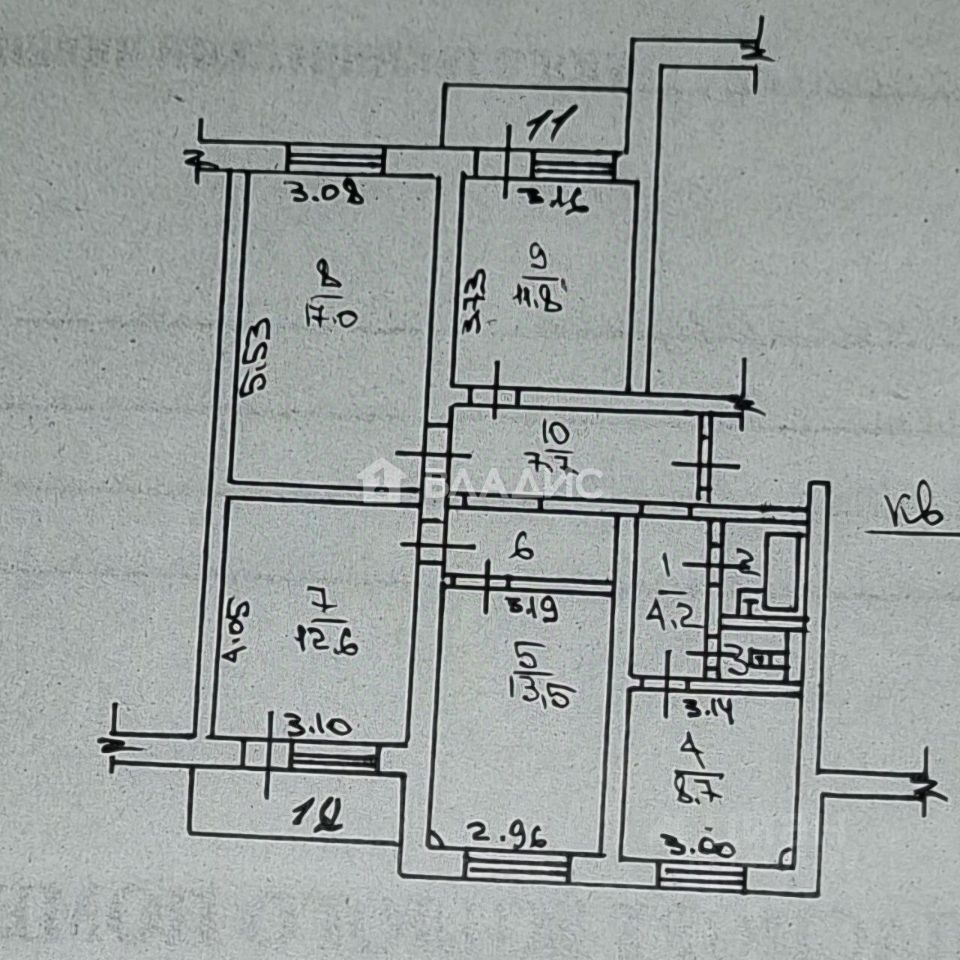 11
3.08
3.16
8
17.0
9
11.8
3.73
5.53
10
7.7
ВЛАДИС
кв
6
1
4.2
2
3
3.19
7
12.6
4.05
5
13,5
3.14
4
8.7
3.10
12
2.96
3.00